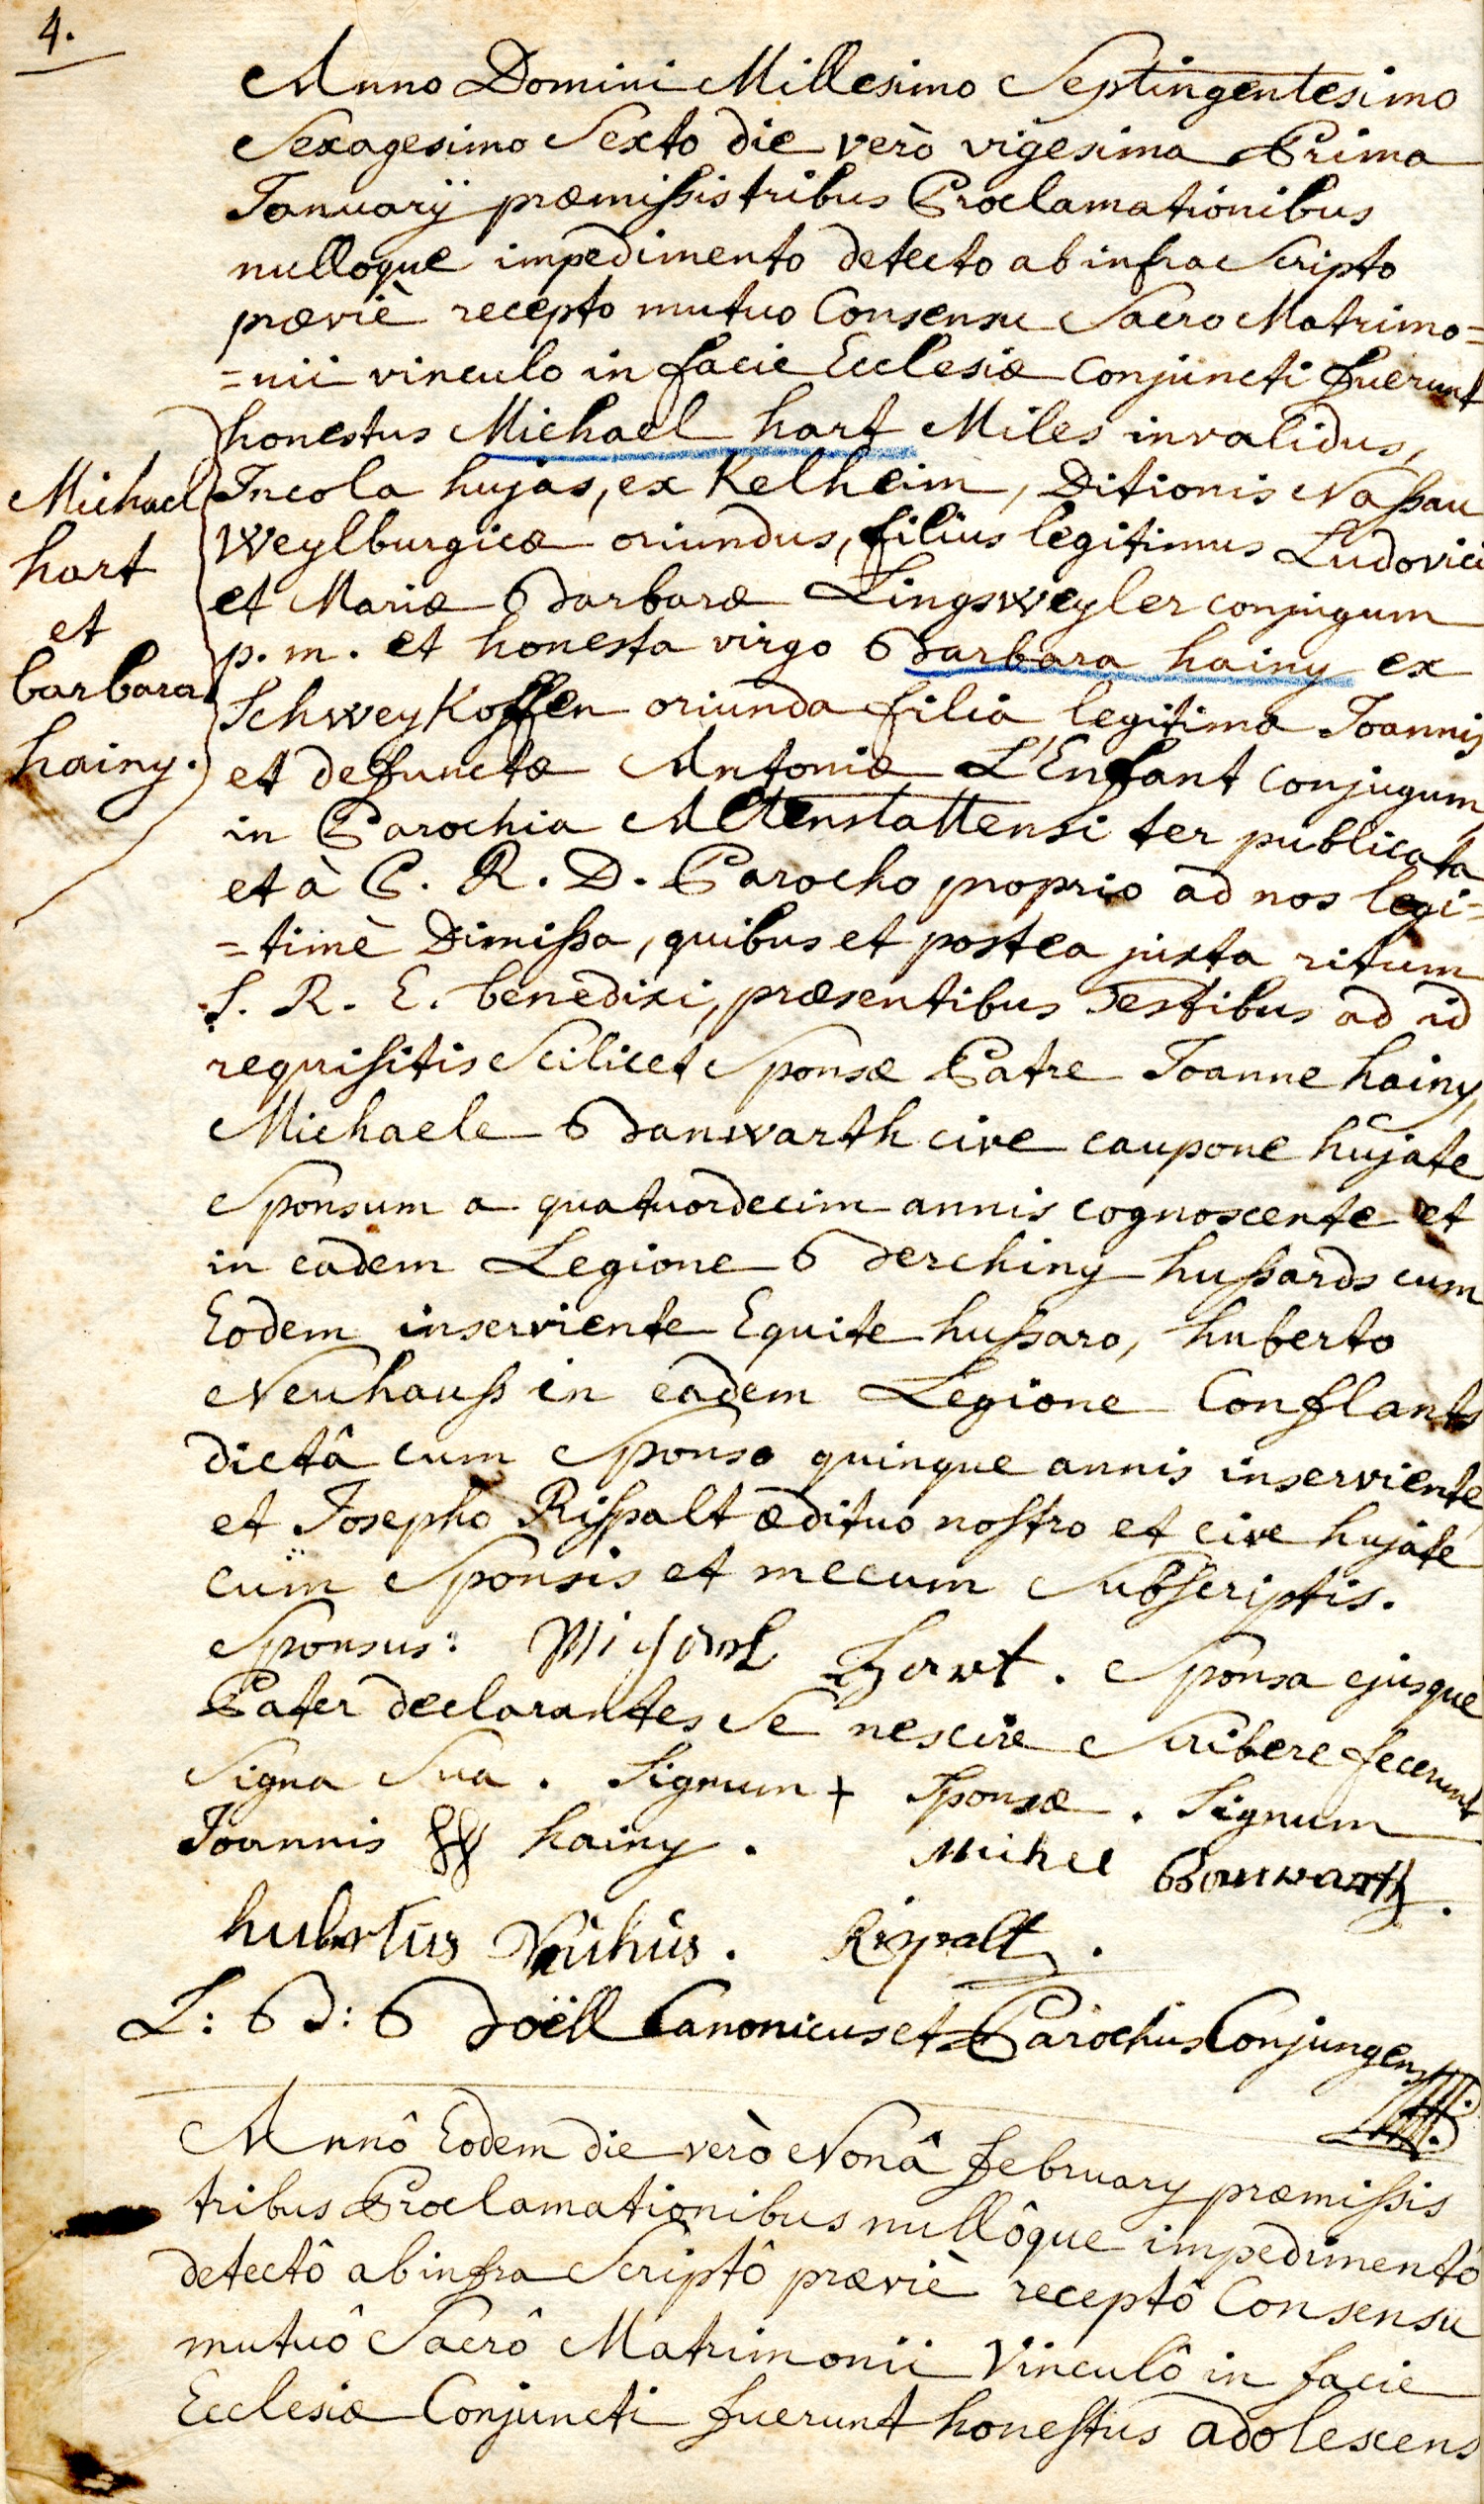 4.
Anno Domini Millesimo Septingentesimo
Sexagesimo Sexto die verò vigesima Prima
Januarÿ præmissis tribus Proclamationibus
nulloque impedimento detecto ab infra Scripto
præviè recepto mutuo Consensu Sacro Matrimo=
=nii vinculo in facie Ecclesiæ Conjuncti fuerunt
honestus Michael hart Miles invalidus,
Incola hujas, ex Kelheim, Ditionis Nassau
Weylburgicæ oriundus, filius legitimus Ludovici
et Mariæ Barbaræ Lingsweyler conjugum
p. m. et honesta virgo Barbara hainy ex
Schweykoffen oriunda filia legitima Joannis
et defunctæ Antoniæ L'Enfant conjugum,
in Parochia Altenstattensi ter publicata
et à P. R. D. Parocho proprio ad nos legi=
=timè Dimissa, quibus et postea juxta ritum
S. R. E. benedixi, præsentibus Testibus ad id
requisitis Scilicet Sponsæ Patre Joanne hainy,
Michaele Banwarth cive caupone hujate
Sponsum a quatuordecim annis cognoscente et
in eadem Legione Berchiny hussards cum
Eodem inserviente Equite hussaro, huberto
Neuhauss in eadem Legione Conflants
dictâ cum Sponso quinque annis inserviente
et Josepho Rispalt ædituo nostro et cive hujate
cum Sponsis et mecum Subscriptis.
Sponsus: Michael Hart. Sponsa ejusque
Pater declarantes Se nescire Scribere fecerunt
Signa Sua. Signum + Sponsæ. Signum
Joannis hainy. Michel Banwarth.
hubertus Neuhus. Rispalt.
L: B: Boëll Canonicus et Parochus Conjungens
Michael
hart
et
barbara
hainy.
Annô Eodem die verò Nonâ february præmissis
tribus Proclamationibus nullôque impedimentô
detectô ab infra Scriptô præviè receptô Consensu
mutuô Sacrô Matrimonii Vinculô in facie
Ecclesiæ Conjuncti fuerunt honestus adolescens